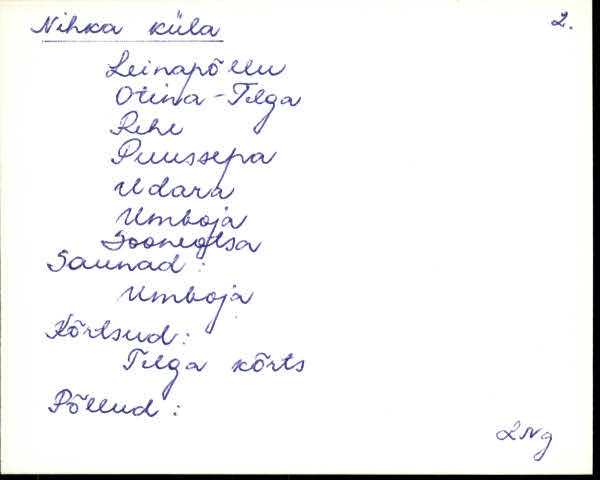 Nihka küla 2.
Leinapõllu
Otina-Tilga
Rehe
Puussepa
Udara
Umboja
Sooneotsa
Saunad:
Umboja
Kõrtsud:
Tilga kõrts
Põllud: